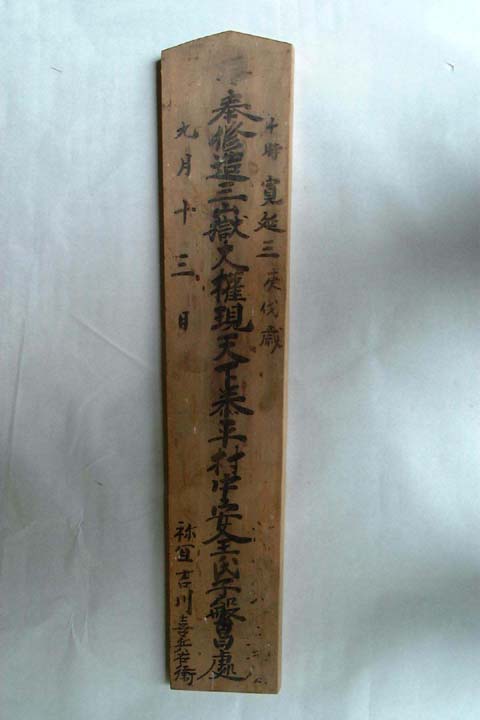 干時 寛延三 庚戌歳
奉修造三嶽大権現天下泰平村中安全氏子般昌處
九月十三日
祢宜 吉川喜兵衛